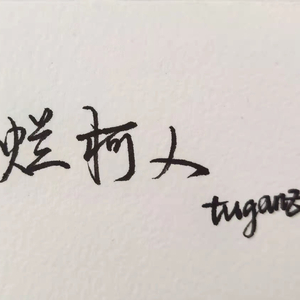 烂柯人
tugan